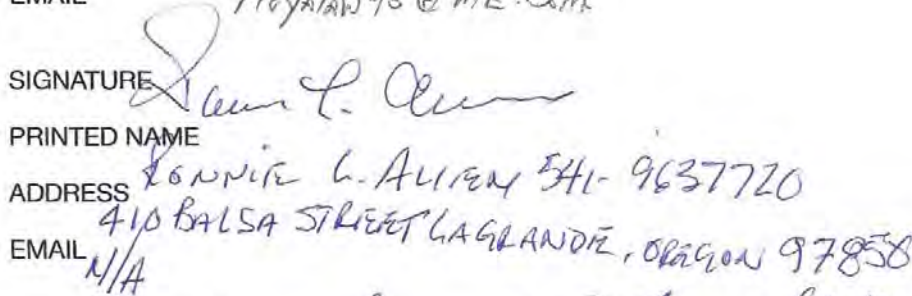 EMAIL
SIGNATURE
PRINTED NAME
RONNIE L. ALLEN 541-9637720
ADDRESS
410 BALSA STREET LAGRANDE, OREGON 97850
EMAIL N/A